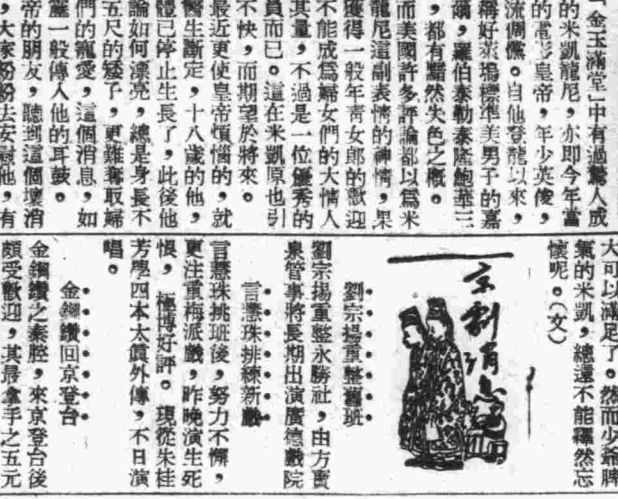 「金玉滿堂」中有過驚人成
的米凱龍尼，亦即今年當
的電影皇帝，年少英俊，
流倜儻。自他登龍以來，
稱好萊鴉標準美男子的嘉
爾，羅伯泰勒泰隆鮑華三
，都有黯然失色之概。
而美國許多評論都以為米
龍尼這副表情的神情，果
獲得一般年靑女郎的歡迎
不能成爲婦女們的大情人
其量，不過是一位優秀的
員而已。這在米凱原也引
不快，而期望於將來。
最近更使皇帝煩惱的，就
醫生斷定，十八歲的他，
體已停止生長了，此後他
論如何漂亮，總是身長不
五尺的矮子，更難奪取婦
們的寵愛，這個消息，如
靂一般傳人他的耳鼓。
帝的朋友，聽到這個壞消
，大家紛紛去安慰他，有
大可以滿足了。然而少爺脾
氣的米凱，總還不能釋然忘
懷呢。（文）
京劇消息
劉宗揚重整舊班
劉宗揚重整永勝社，由方寶
泉管事將長期出演廣德戲院
言慧珠排練新戲
言慧珠挑班後，努力不懈，
更注重梅派戲，昨晚演生死
恨，極博好評。現從朱桂
芳學四本太眞外傳，不日演
唱。
金鋼鑽回京登台
金鋼鑽之秦腔，來京登台後
頗受歡迎，其最拿手之五元